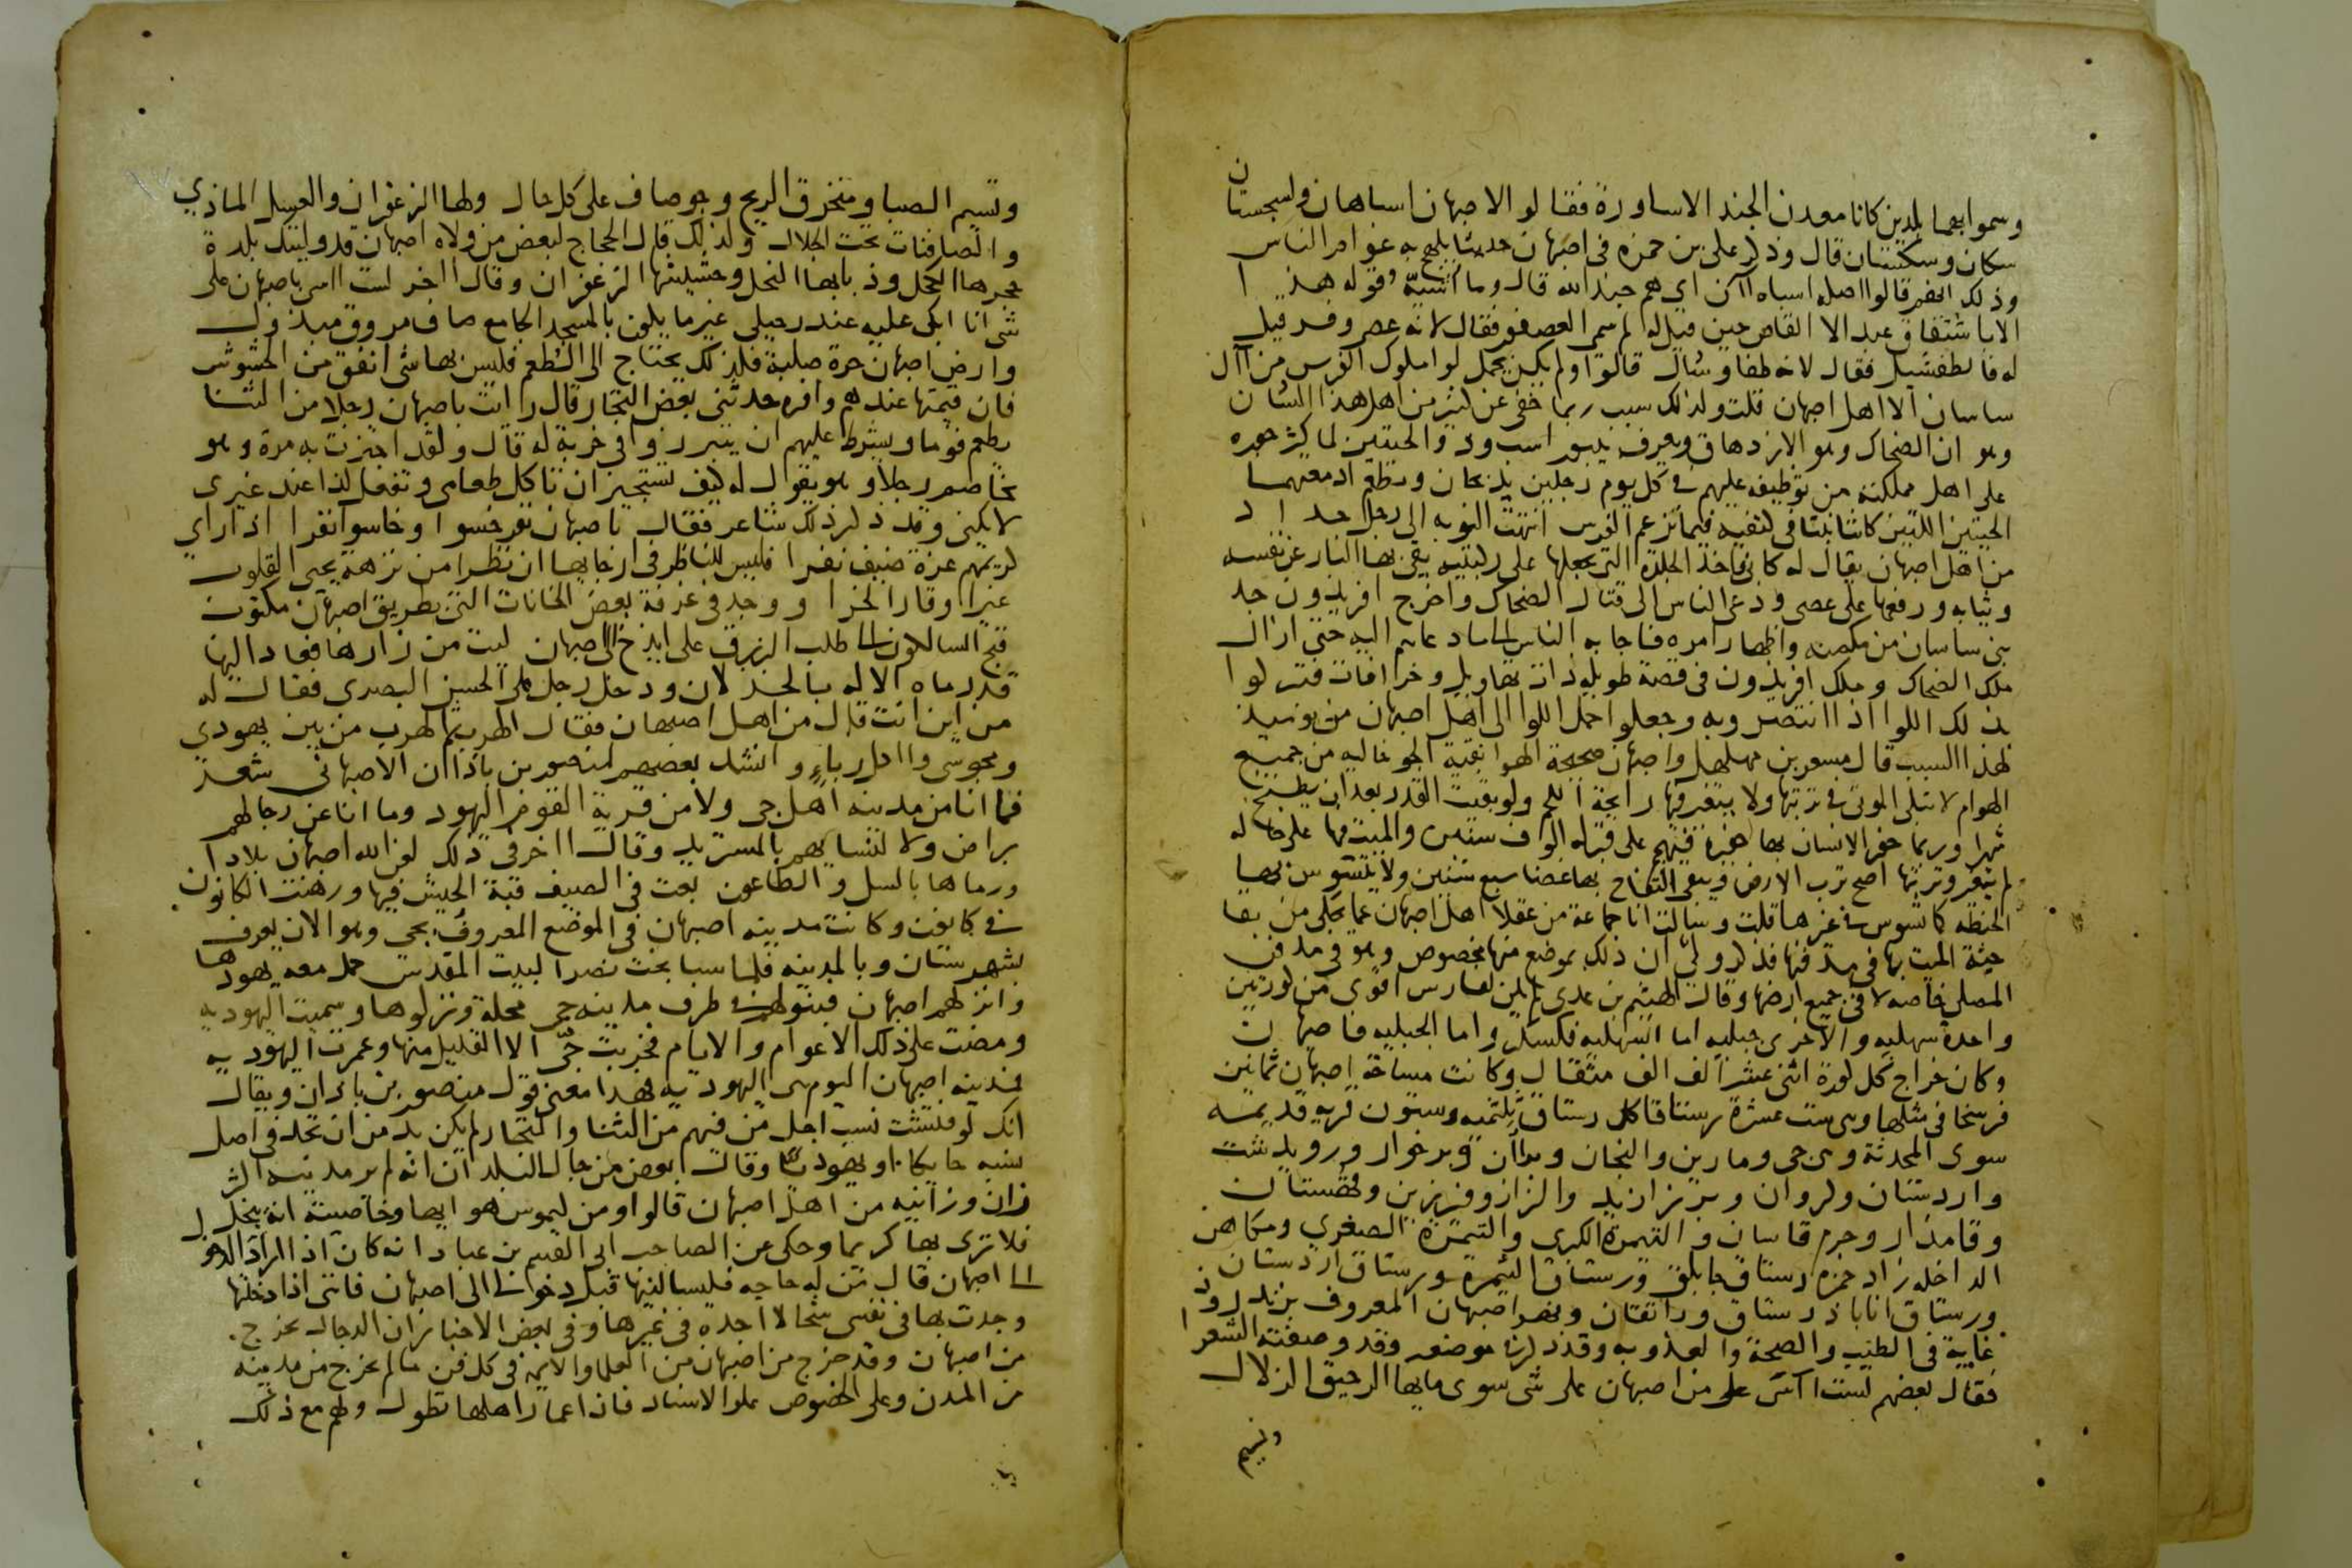 وسموا بهما بلدين كانا معدن الجند الاساورة فقالوا الاصبهان اسباهان ولسجستان
سكان وسكستان قال وذكر على بن حمزه فى اصبهان حديثا يلهج به عوام الناس
وذلك انهم قالوا اصله اسباه آن اى هم جند الله قال وما اشبه قوله هذا
الا باشتقاق عبد الاعلا القاص حين قيل له لم سمى العصفور فقال لانه عصى وفر قيل
له فالطفشيل فقال لانه طفا وشال قالوا ولم يكن يحمل لوا ملوك الفرس من آل
ساسان الا اهل اصبهان قلت ولذلك سبب ربما خفى عن كثير من اهل هذا الشان
وهو ان الضحاك وهو الازدهاق ويعرف ببيوراسب وذو الحيتين لما كثر جوره
على اهل مملكته من توظيفه عليهم فى كل يوم رجلين يذبحان وتطعم ادمغتهما
الحيتين اللتين كانتا نبتتا فى كتفيه فيما تزعم الفرس انتهت النوبه الى رجل حداد
من اهل اصبهان يقال له كابى فاخذ الجلدة التى يجعلها على ركبتيه يقى بها النار عن نفسه
وثيابه ورفعها على عصى ودعى الناس الى قتال الضحاك واخرج افريدون جد
بنى ساسان من مكمنه واظهار امره فاجابه الناس الى ما دعاهم اليه حتى ازال
ملك الضحاك وملك افريدون فى قصة طويلة ذات تهاويل وخرافات فتبركوا
بذلك اللوا اذا انتصروا به وجعلوا حمل اللوا الى اهل اصبهان من يومئذ
لهذا السبب قال مسعر بن مهلهل واصبهان صحيحة الهوا نقية الجو خاليه من جميع
الهوام لا تبلى الموتى فى تربتها ولا يتغير فيها رايحة اللحم ولو بقيت القدر بعد ان يطبخ
شهرا وربما حفر الانسان بها حفيرة فيهجم على قبر له الوف سنين والميت فيها على حاله
لم يتغير وتربتها اصح ترب الارض ويبقى التفاح بها غضا سبع سنين ولا يتسوس بها
الحنطه كما تسوس فى غيرها قلت وسالت انا جماعة من عقلا اهل اصبهان عما يحكى من بقا
جثة الميت بها فى مدفنها فذكروا لى ان ذلك بموضع منها مخصوص وهو فى مدفن
المصلى خاصه لا فى جميع ارضها وقال الهيثم بن عدى لم يكن لفارس اقوى من كورتين
واحدة سهليه والاخرى جبليه اما السهليه فكسكر واما الجبليه فاصبهان
وكان خراج كل كورة اثنى عشر الف الف مثقال وكانت مساحة اصبهان ثمانين
فرسخا فى مثلها وهى ست عشرة رستاقا كل رستاق ثلثمية وستون قريه قديمه
سوى المحدثة وهى جى وماربين والنجان وبراان وبرخوار ورويدشت
واردستان وكروان وبرزاوند والراز وفريدين وقهستان
وقامدار وجرم قاسان والتيمرة الكبرى والتيمرة الصغرى ومكاهن
الداخله زاد حمزه رستاق جابلق ورستاق التيمرة ورستاق اردستان
ورستاق اناباذ رستاق ورانقان ونهر اصبهان المعروف بزندروذ
غاية فى الطيب والصحة والعذوبه وقد ذكر فى موضعه وقد وصفته الشعرا
فقال بعضهم لست اسى على من اصبهان على شى سوى مايها الرحيق الزلال
ونسيم
ونسيم الصبا ومنخرق الريح وجو صاف على كل حال ولها الزعفران والعسل الماذي
والصافنات تحت الجلال ولذلك قال الحجاج لبعض من ولاه اصبهان قد وليتك بلدة
حجرها الكحل وذبابها النحل وحشيشها الزعفران وقال اخر لست اسى باصبهان على
شى انا ابكى عليه عند رحيلى غير ما يكون بالمسجد الجامع صاف مروق مبذول
وارض اصبهان حرة صلبة فلذلك يحتاج الى الطعم فليس بها شى انفق من الحشوش
فان قيمتها عندهم وافره حدثنى بعض التجار قال رايت باصبهان رجلا من التنا
يطعم قوما ويشرط عليهم ان يتبرزوا فى خربة له قال ولقد اجتزت به مرة وهو
يخاصم رجلا وهو يقول له كيف تستجيز ان تاكل طعامى وتفعل كذا عند غيرى
لا يكنى وقد ذكر ذلك شاعر فقال باصبهان نفر خسوا وخاسوا نفرا اذا راى
كريمهم غرة ضيف نفرا فليس للناظر فى ارجايها ان نظرا من نزهة يحيى القلوب
غير اوقار الخرا ووجد فى غرفة بعض الخانات التى بطريق اصبهان مكتوب
قبح السالكون الى طلب الرزق على ايذخ الى اصبهان ليت من زارها فعاد اليها
قد رماه الاله بالخذلان ودخل رجل على الحسن البصرى فقال له
من اين انت قال من اهل اصبهان فقال الهرب من بين يهودى
ومجوسى واكل رباء وانشد بعضهم لمنصور بن باذان الاصبهانى شعر
فما انا من مدينه اهل جى ولا من قرية القوم اليهود وما انا عن رجالهم
براض ولا لنسايهم بالمستزيد وقال اخر فى ذلك لعن الله اصبهان بلادا
ورماها بالسل والطاعون بعت فى الصيف قبة الخيش فيها ورهنت الكانون
فى كانون وكانت مدينه اصبهان فى الموضع المعروف بجى وهو الان يعرف
بشهرستان وبالمدينه فلما سبا بخت نصر ا لبيت المقدس حمل معه يهودها
وانزلهم اصبهان فبنوا فى طرف مدينه جى محلة ونزلوها وسميت اليهوديه
ومضت على ذلك الاعوام والايام فخربت جى الا القليل منها وعمرت اليهوديه
فمدينه اصبهان اليوم هى اليهوديه هذا معنى قول منصور بن باذان ويقال
انك لو فتشت نسب اجل من فيهم من التنا والتجار لم يكن بد من ان تجد فى اصل
نسبه حايكا او يهوديا وقال بعض من جال البلدان انه لم ير مدينه اكثر
زان وزانيه من اهل اصبهان قالوا ومن كيموس هوايها وخاصيته انه يبخل
فلا ترى بها كريما وحكى عن الصاحب ابى القسم بن عباد انه كان اذا اراد الدخول
الى اصبهان قال من له حاجه فليسالنيها قبل دخولى الى اصبهان فاننى اذا دخلتها
وجدت بها فى نفسى شحا لا اجده فى غيرها وفى بعض الاخبار ان الدجال يخرج
من اصبهان وقد خرج من اصبهان من العلما والايمه فى كل فن ما لم يخرج من مدينه
من المدن وعلى الخصوص علو الاسناد فان اعمار اهلها تطول ولهم مع ذلك